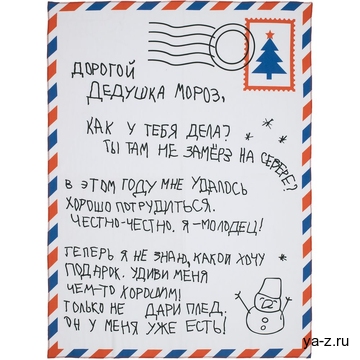 ДОРОГОЙ
ДЕДУШКА МОРОЗ,
КАК У ТЕБЯ ДЕЛА?
ТЫ ТАМ НЕ ЗАМЁРЗ НА СЕВЕРЕ?
В ЭТОМ ГОДУ МНЕ УДАЛОСЬ
ХОРОШО ПОТРУДИТЬСЯ.
ЧЕСТНО-ЧЕСТНО. Я-МОЛОДЕЦ!
ТЕПЕРЬ Я НЕ ЗНАЮ, КАКОЙ ХОЧУ
ПОДАРОК. УДИВИ МЕНЯ
ЧЕМ-ТО ХОРОШИМ!
ТОЛЬКО НЕ ДАРИ ПЛЕД,
ОН У МЕНЯ УЖЕ ЕСТЬ!
ya-z.ru